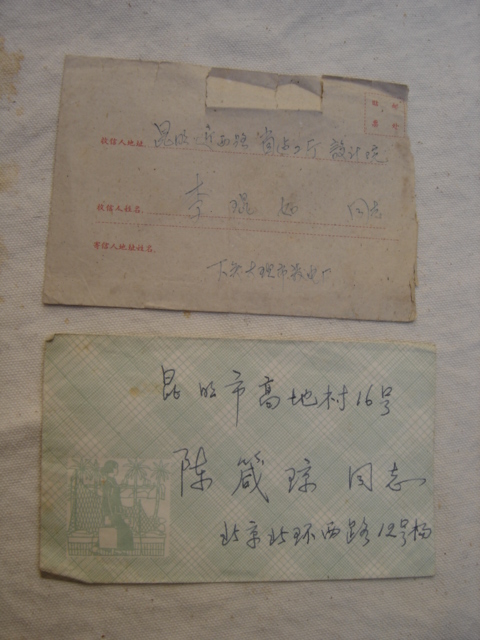 贴邮
票处
收信人地址 昆明 西 省 厅 设计院
收信人姓名 李琨 同志
寄信人地址姓名
下关大理市发电厂
昆明市高地村16号
陈箴琼 同志
北京北环西路12号杨